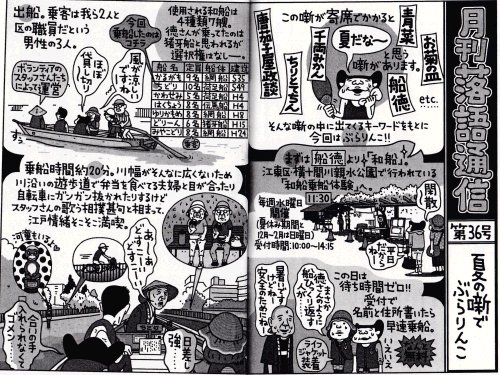 月刊落語通信
第36号
夏の噺で
ぶらりんこ
この噺が寄席でかかると
夏だな〜
と思う
噺があります。
お菊の皿
青菜
船徳
千両みかん
ちりとてちん
唐茄子屋政談
etc.…
そんな噺の中に出てくるキーワードをもとに
今回はぶらりんこ!!
まずは「船徳」より「和船」。
江東区・横十間川親水公園で行われている
「和船乗船体験」へ。
毎週水曜日
開催
(夏休み期間と
12月〜2月は日曜日)
受付時間:10:00〜14:15
11:30
閑散
この日は
待ち時間ゼロ!!
受付で
名前と住所書いたら
早速乗船。
乗船
無料
いえいえ
ライフ
ジャケット
装着
暑いです
けどね〜
安全の
ためにね
出船。乗客は我ら2人と
区の職員だという
男性の3人。
ボランティアの
スタッフさんたち
によって運営
ほぼ
貸し切り
風が
涼しい
ですね
すぅ
今回
乗船したのは
コチラ
使用される和船は
4種類7艘。
徳さんが乗ってたのは
猪牙船と思われるが
選択権はなし…。
船名
定員
船種
乗船時間約20分。川幅がそんなに広くないため
川沿いの遊歩道で弁当を食べてる夫婦と目が合ったり
自転車にガンガン抜かれたりするけど
スタッフさんの歌う相撲甚句と相まって、
江戸情緒そこそこ満喫。
河童もいるよ
合いの手
入れられなくて
ゴメン
日差し
強…